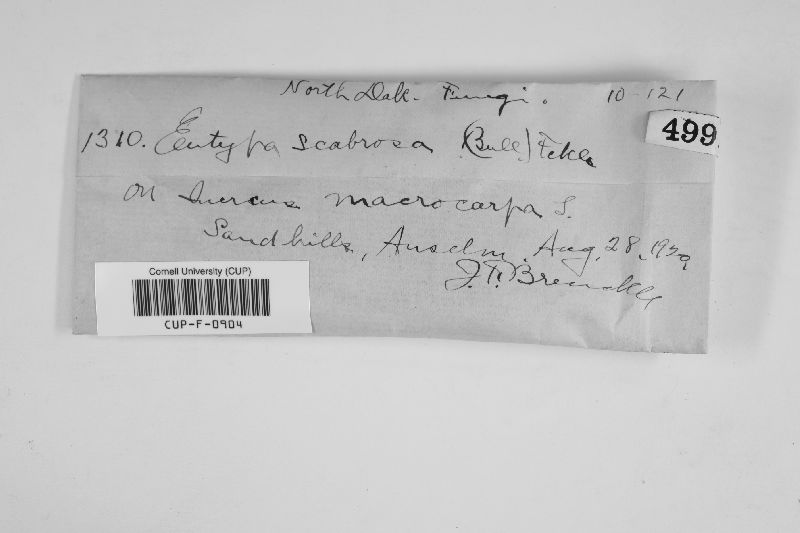 North Dak. Fungi. 10-121
499
1310. Eutypa scabrosa (Bull) Fckl.
on Quercus macrocarpa L.
Sandhills, Anselm, Aug. 28,
J. F. Brenckle
Cornell University (CUP)
CUP-F-0904